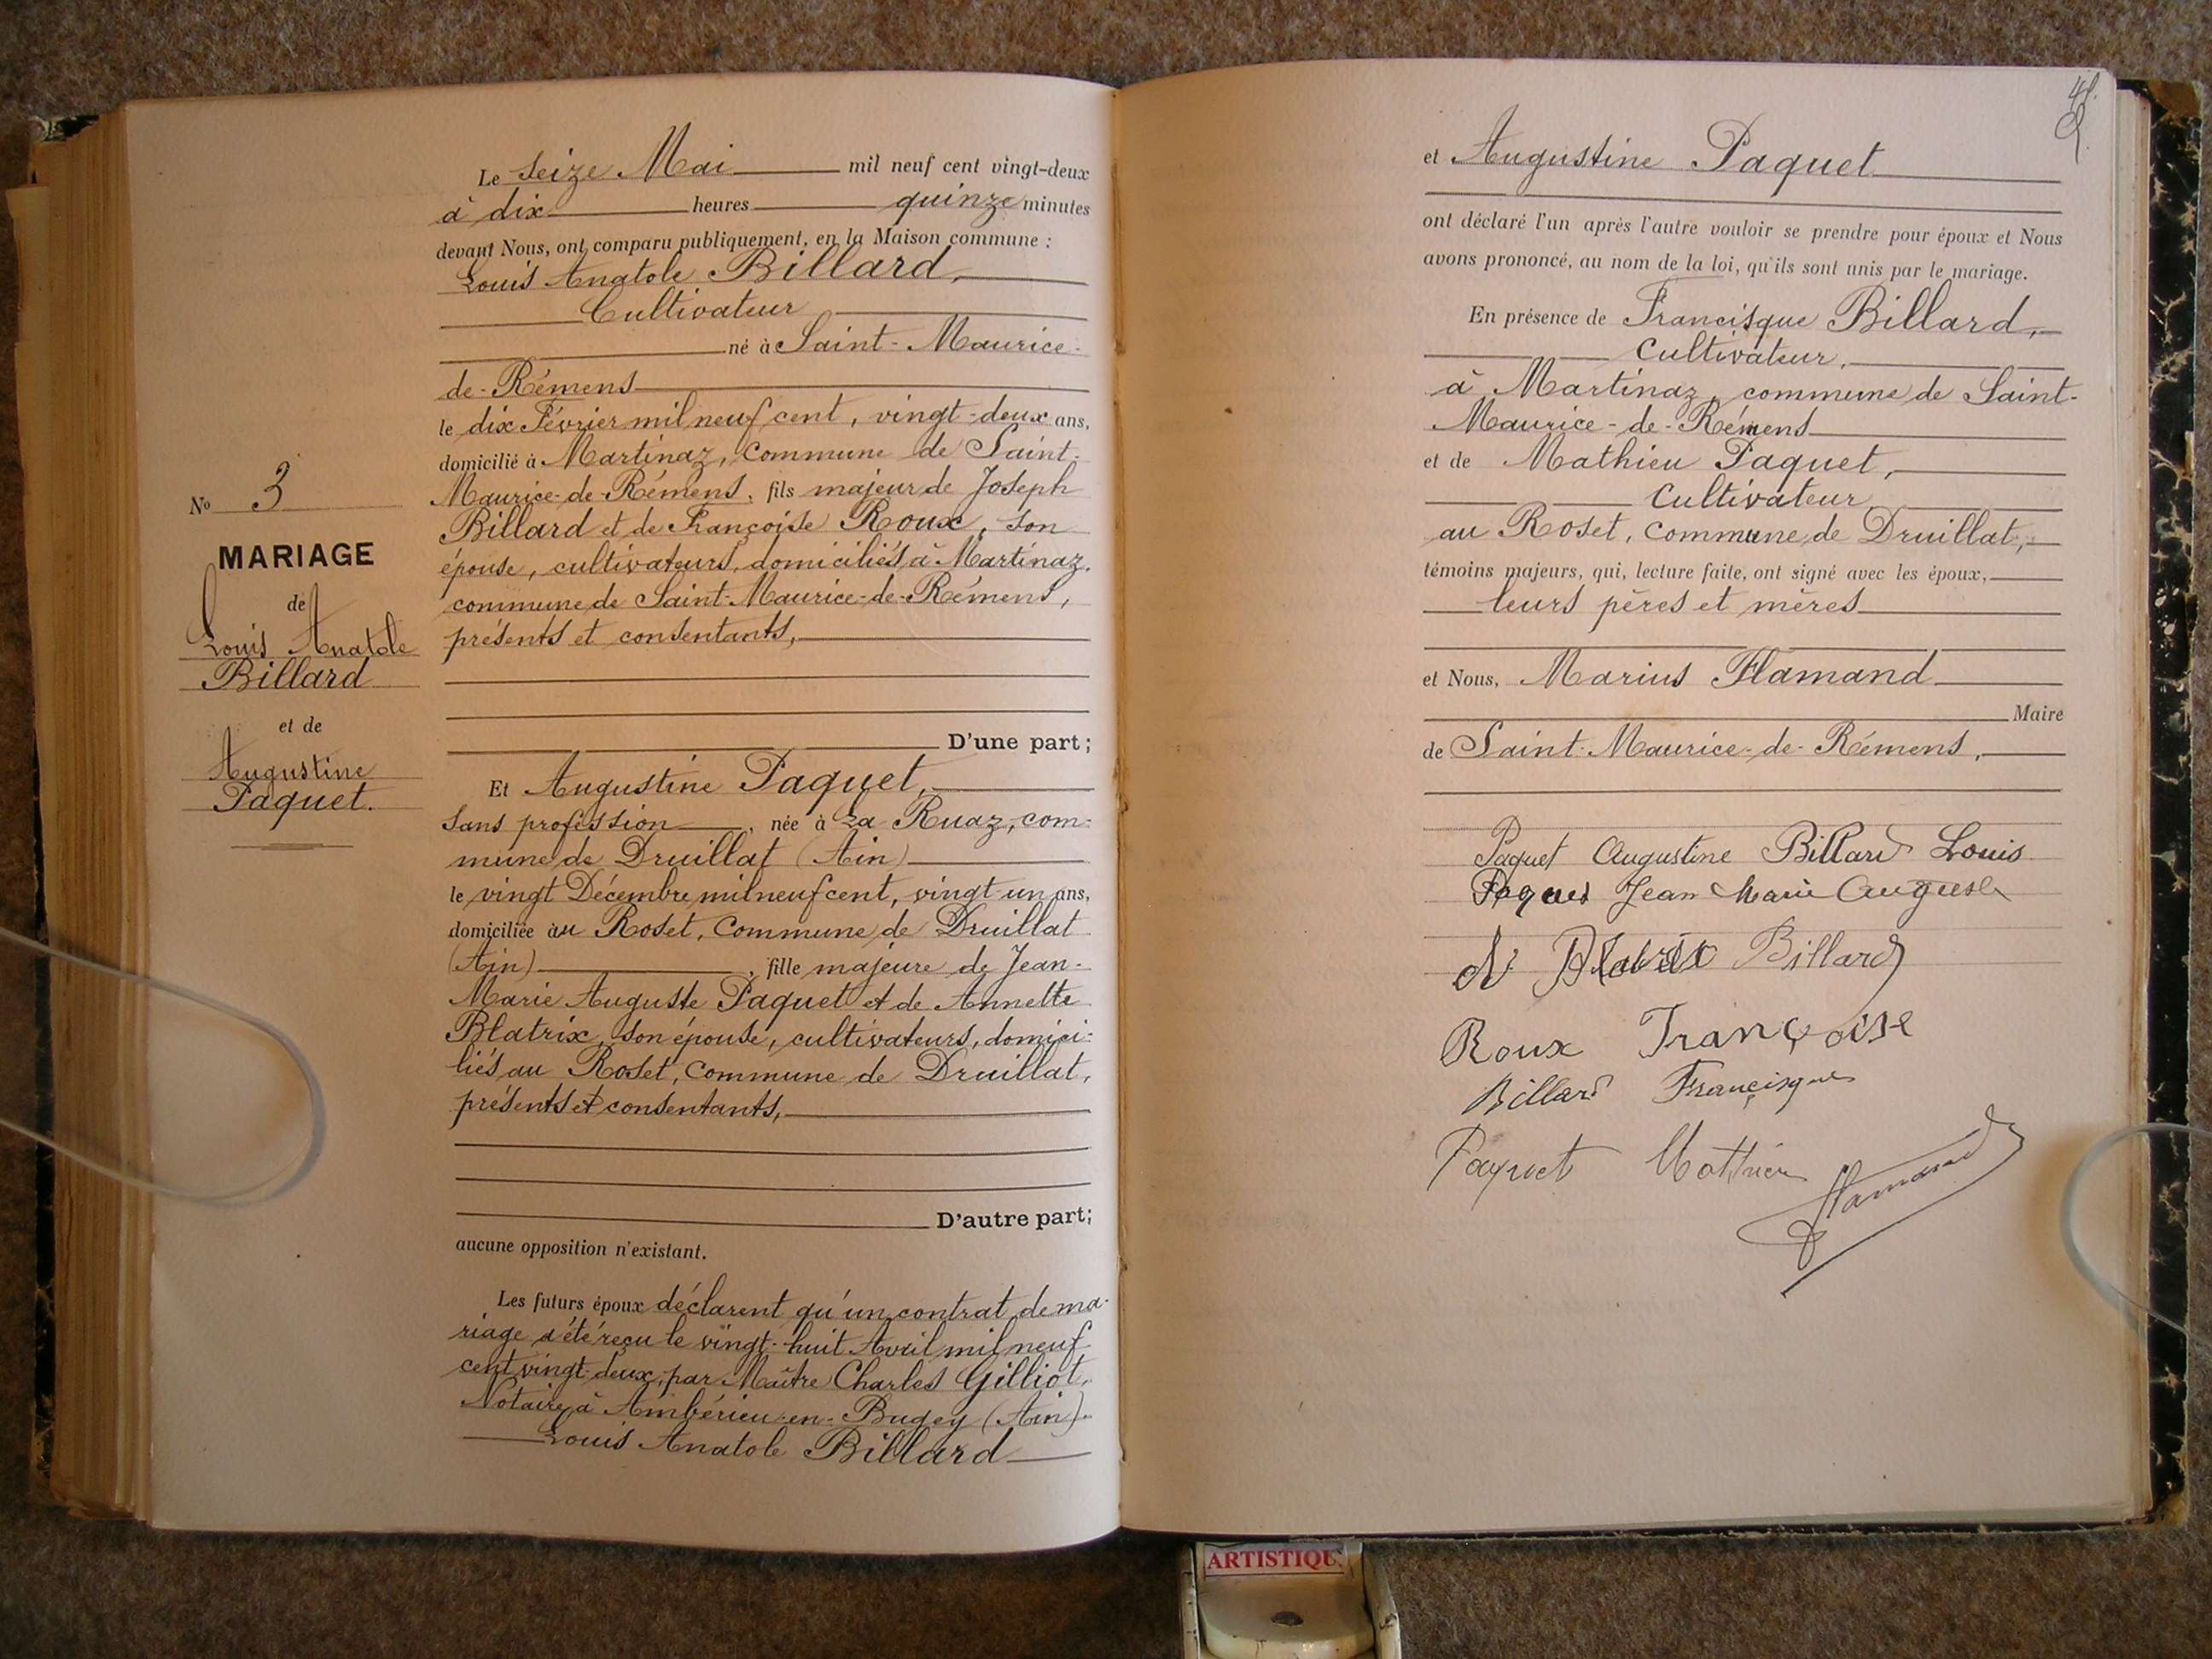 Le Seize Mai mil neuf cent vingt-deux
à dix heures quinze minutes
devant Nous, ont comparu publiquement, en la Maison commune :
Louis Anatole Billard,
Cultivateur
né à Saint-Maurice-
de-Rémens
le dix Février mil neuf cent, vingt-deux ans,
domicilié à Martinaz, commune de Saint-
Maurice-de-Rémens, fils majeur de Joseph
Billard et de Françoise Roux, son
épouse, cultivateurs, domiciliés à Martinaz,
commune de Saint-Maurice-de-Rémens,
présents et consentants,
D'une part ;
Et Augustine Paquet,
Sans profession, née à La Ruaz, com-
mune de Druillat (Ain)
le vingt Décembre mil neuf cent, vingt-un ans,
domiciliée au Roset, Commune de Druillat
(Ain), fille majeure de Jean-
Marie Auguste Paquet et de Annette
Blatrix, son épouse, cultivateurs, domici-
liés au Roset, commune de Druillat,
présents et consentants,
D'autre part ;
aucune opposition n'existant.
Les futurs époux déclarent qu'un contrat de ma-
riage a été reçu le vingt-huit Avril mil neuf
cent vingt-deux, par Maître Charles Gilliot,
Notaire à Ambérieu-en-Bugey (Ain).
Louis Anatole Billard
No 3
MARIAGE
de
Louis Anatole
Billard
et de
Augustine
Paquet.
et Augustine Paquet
ont déclaré l'un après l'autre vouloir se prendre pour époux et Nous
avons prononcé, au nom de la loi, qu'ils sont unis par le mariage.
En présence de Francisque Billard,
Cultivateur,
à Martinaz, commune de Saint-
Maurice-de-Rémens
et de Mathieu Paquet,
Cultivateur
au Roset, Commune de Druillat,
témoins majeurs, qui, lecture faite, ont signé avec les époux,
leurs pères et mères
et Nous, Marius Flamand
Maire
de Saint-Maurice-de-Rémens,
Paquet Augustine Billard Louis
Paquet Jean Marie Auguste
Blatrix Billard
Roux Françoise
Billard Francisque
Paquet Mathieu
Flamand
ARTISTIQU